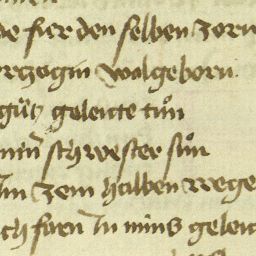 de fier den selben zorn
ertzogin wolgeborn
gůt geleitte tůn
min schwester sůn
Im zem halben wege
ich faren In mins geleit